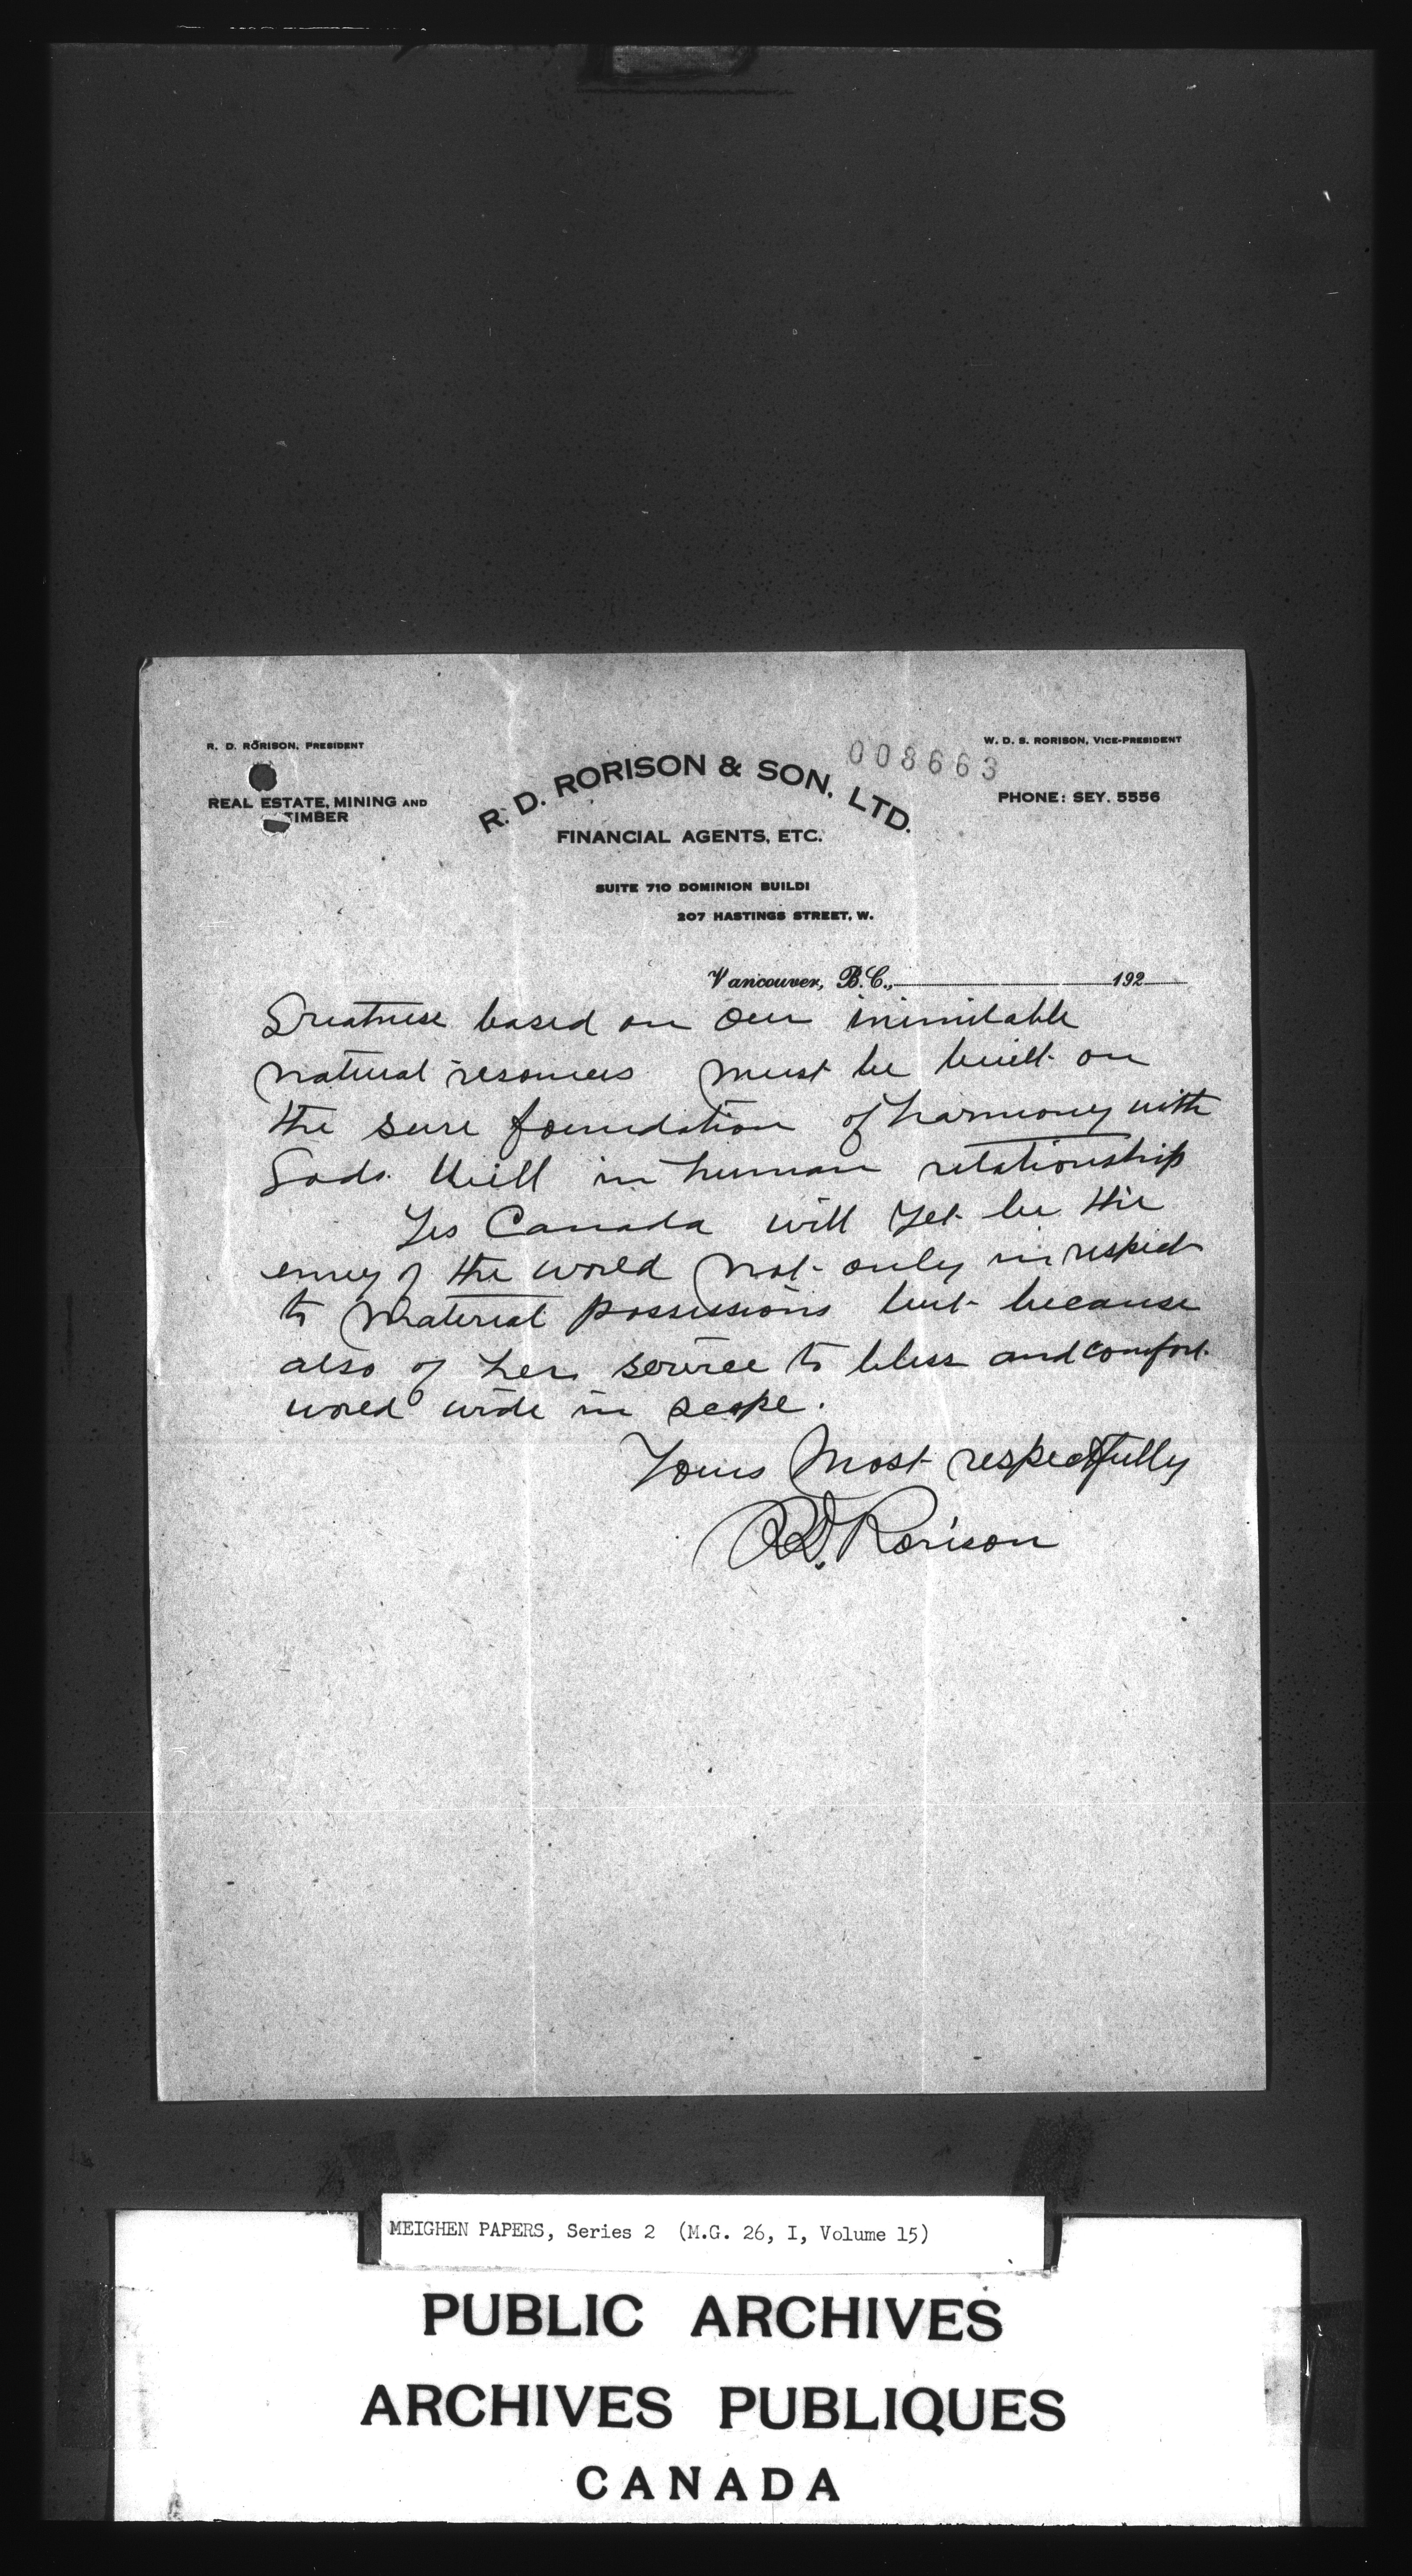 R. D. RORISON, PRESIDENT
W. D. S. RORISON, VICE-PRESIDENT
008663
R. D. RORISON & SON, LTD.
REAL ESTATE, MINING AND
TIMBER
PHONE: SEY. 5556
FINANCIAL AGENTS, ETC.
SUITE 710 DOMINION BUILDI
207 HASTINGS STREET, W.
Vancouver, B.C., 192
Greatness based on our inimitable
natural resources must be built on
the sure foundation of harmony with
Gods Will in human relationship
Yes Canada will yet be the
envy of the world not only in respect
to material possessions but because
also of her service to bless and comfort
world wide in scope.
Yours Most respectfully
R.D. Rorison
MEIGHEN PAPERS, Series 2 (M.G. 26, I, Volume 15)
PUBLIC ARCHIVES
ARCHIVES PUBLIQUES
CANADA